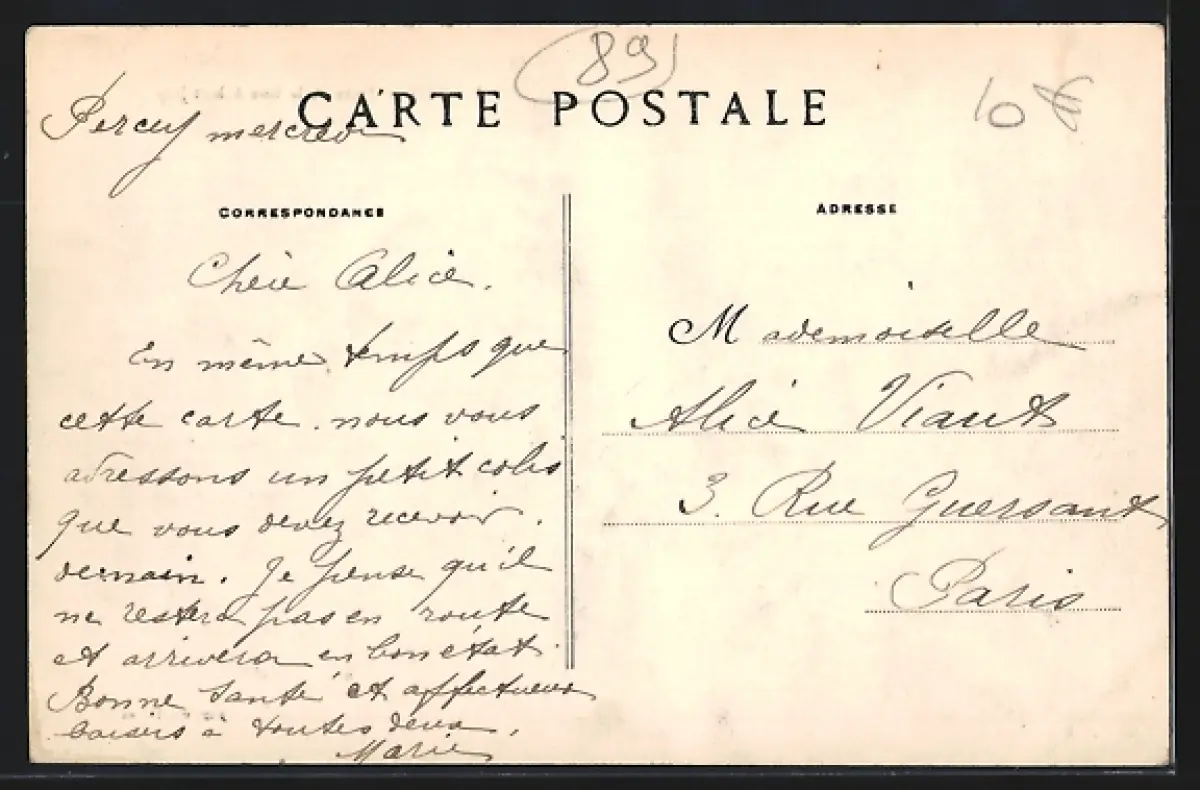 (89)
10 €
CARTE POSTALE
Percey mercredi
CORRESPONDANCE
ADRESSE
Chère Alice.
En même temps que
cette carte. nous vous
adressons un petit colis
que vous devez recevoir.
demain. Je pense qu'il
ne restera pas en route
et arrivera en bon état.
Bonne santé et affectueux
baisers à toutes deux.
Marie
Mademoiselle
Alice Viault
3. Rue Guersant
Paris